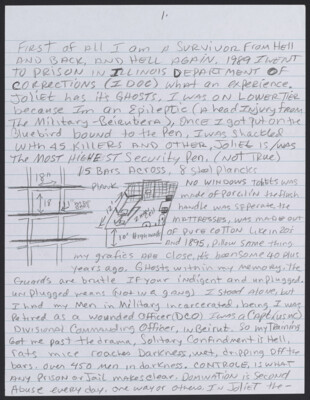 1.
First of All I am A Survivor From Hell
AND BACK, AND HELL AGAIN. 1989 I WENT
TO PRISON IN ILLINOIS DEPARTMENT OF
CORRECTIONS (IDOC) what an experience.
Joliet has its GHOSTS. I was on LOWER TIER
because Im an Epileptic (a Head Injury from
The Military-Beirut), ONCE I got put on the
Bluebird bound to the Pen, I was shackled
with 45 KILLERS AND OTHER, Joliet is/was
The MOST HIGHEST Security Pen. (NOT TRUE)
15 Bars Across, 8 Steel Plancks
18"
18
PLANK
NO WINDOWS Toilets was
made of Porcilin the Flush
handle was seperate the
MATTRESSES, was made out
of pure cotton Like in 201
and 1895, Pillow same thing
my grafics are close, its been some 30 plus
years ago. Ghosts within my Memory. The
Guards are brutle If your indigent and unplugged.
un plugged means (not we gang). I stood alone, but
I had my Men in Military incarcerated, being I was
Retired as a wounded Officer (DCO) I was a Capt (USMC)
Divisional Commanding Officer, in Beirut. So my Training
Got me past the drama, Solitary Confindment is Hell,
rats mice roaches Darkness, wet, dripping off the
bars. Over 450 men in darkness. CONTROLE, IS WHAT
Any Prison or Jail makes clear. Domination is second
Abuse every day. One way or others IN Joliet the-